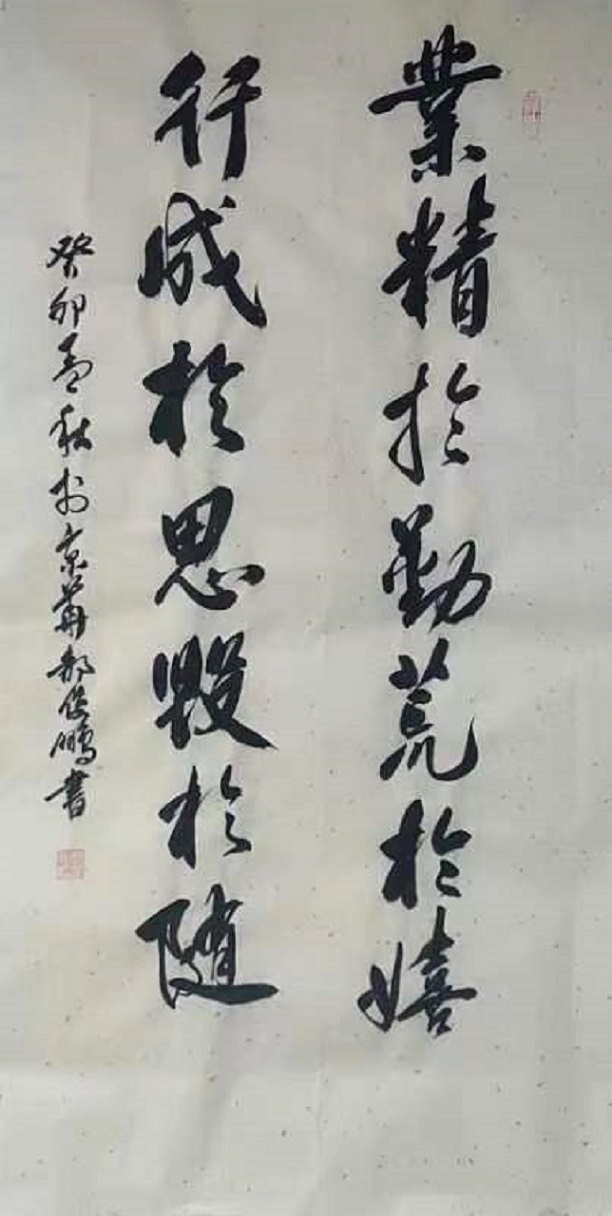 業精於勤荒於嬉
行成於思毀於随
癸卯孟秋於京華郝俊鵬書